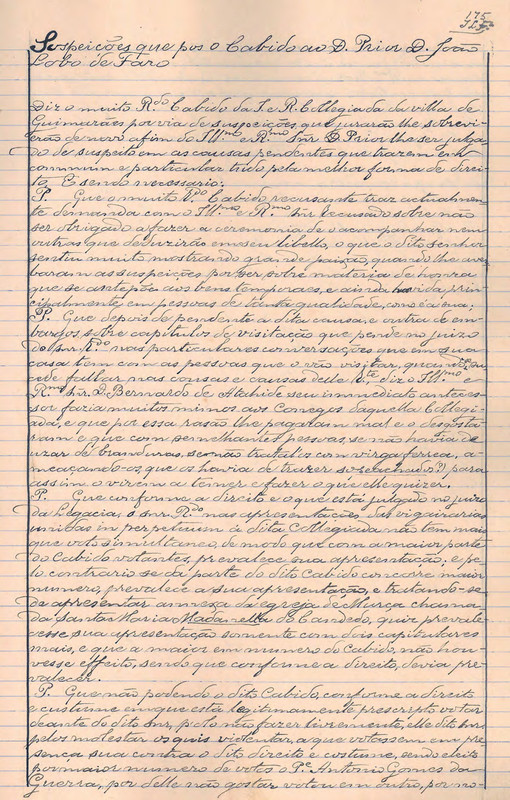 175
Suspeições que pos o Cabido ao D. Prior D. João
Lobo de Faro
Diz o muito R.do Cabido da I. e R. Collegiada da villa de
Guimarães por via de suspeições, que jurarão lhe sobrevi-
erão de novo afim do Ill.mo e R.mo Snr. D. Prior lhe ser julga-
do de suspeito em as causas pendentes que trazem em
commum e particular tudo pela melhor forma de direi-
to. E sendo necessario:
P. Que o muito R.do Cabido recusante traz actualmen-
te demanda com o Ill.mo e R.mo Snr recusado sobre não
ser obrigado a fazer a ceremonia de o acompanhar nem
outras que deduzirão em seu libello, o que o dito senhor
sentiu muito mostrando grande paixão, quando lhe aver-
baram as suspeições, por ser sobre materia de honra
que se antepõe aos bens temporaes, e ainda há vida, prin-
cipalmente em pessoas de tanta qualidade, como é a sua;
P. Que depois de pendente a dita causa, e outra de em-
bargos, sobre capitulos de visitação que pende no juizo
do Snr. R.do nas particulares conversações que em sua
casa tem com as pessoas que o vão visitar, quando su-
cede fallar nas cousas e causas delle diz o Ill.mo e
R.mo Snr. D. Bernardo de Atahide seu immediato anteces-
sor faria muitos mimos aos Conegos daquella Collegi-
ada, e que por essa rasão lhe pagaram mal e o desgosta-
ram e que com semelhantes pessoas, se não havia de
uzar de branduras, se não tratal-os com virga ferrea, a-
meaçando-os, que os havia de trazer (?) para
assim o virem a temer e fazer o que elle quizer.
P. Que conforme a direito e o que está julgado no juizo
da Legacia, o snr. R.do nas apresentações das vigairarias
unidas in perpetuum á dita Collegiada não tem mais
que voto simultaneo, de modo que com a maior parte
do Cabido votantes, prevalece sua apresentação; e pe-
lo contrario se da parte do dito Cabido concorre maior
numero, prevalece a sua apresentação, e tratando-se
de apresentar annexa da egreja de Murça chama-
da Santa Maria Madanella do Candedo, quiz prevale-
cesse sua apresentação somente com dois capitulares
mais, e que a maior em numero do Cabido, não hou-
vesse effeito, sendo que conforme a direito, devia pre-
valecer.
P. Que não podendo o dito Cabido, conforme a direito
e custume em que está legitimamente prescripto votar
deante do dito Snr, pelo não fazer livremente, elle dito Snr
pelos molestar os quis violentar, a que votassem em pre-
sença sua contra o dito direito e costume, sendo eleito
por maior numero de votos o P.e Antonio Gomes da
Guerra, por delle não gostar votou em outro, por no-